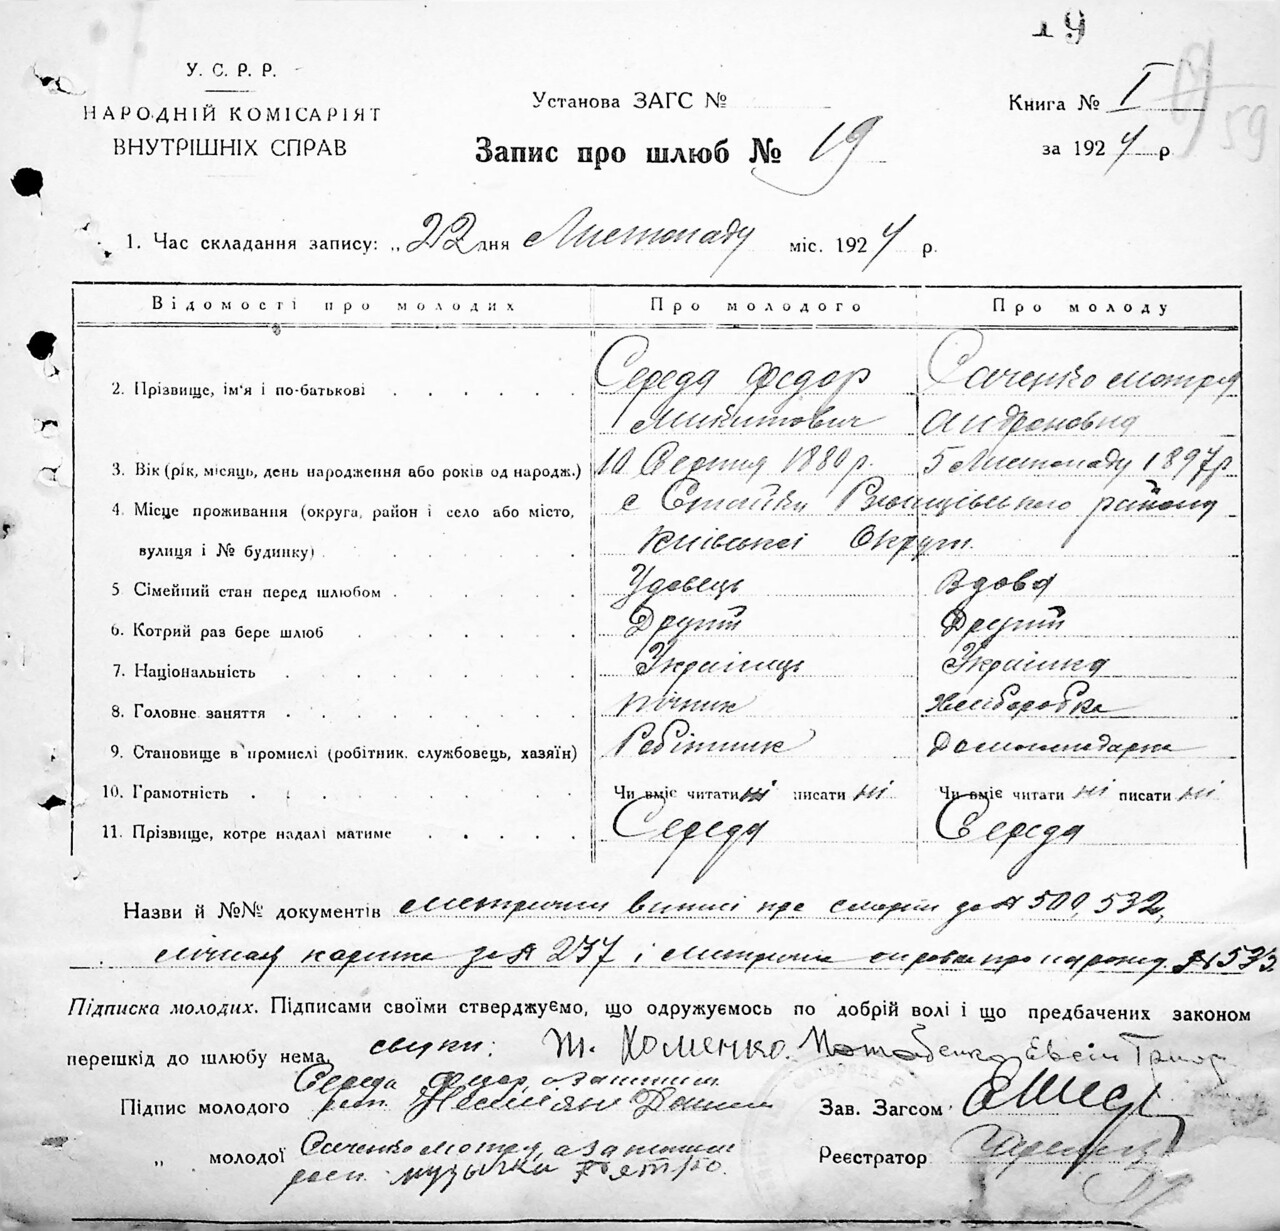 19
У. С. Р. Р.
НАРОДНІЙ КОМІСАРІЯТ
ВНУТРІШНІХ СПРАВ
Установа ЗАГС №
Запис про шлюб № 19
Книга № I
за 1924 р.
59
1. Час складання запису: „22 дня Листопаду міс. 1924 р.
Відомості про молодих Про молодого Про молоду
2. Прізвище, ім'я і по-батькові Середа Федор Саченко Мотря
Микитович Андроновна
3. Вік (рік, місяць, день народження або років од народж.) 10 Серпня 1880 р. 5 Листопаду 1897 р.
4. Місце проживання (округа, район і село або місто, с Стайки Ржищівського району
вулиця і № будинку) Київської Округи.
5 Сімейний стан перед шлюбом Удовець Вдова
6. Котрий раз бере шлюб Другий Другий
7. Національність Українець Українка
8. Головне заняття Пічник Хліборобка
9. Становище в промислі (робітник, службовець, хазяїн) Робітник Домогосподарка
10. Грамотність Чи вміє читати ні писати ні Чи вміє читати ні писати ні
11. Прізвище, котре надалі матиме Середа Середа
Назви й №№ документів метричний витяг про смерть за № 500, 532,
лічная картка за № 237 і метрична справка про народж. № 533
Підписка молодих. Підписами своїми стверджуємо, що одружуємось по добрій волі і що предбачених законом
перешкід до шлюбу нема. свідки: Т. Хоменко. Евсій
Підпис молодого Середа Федор, а за нього
росп.
Зав. Загсом
„ молодої Саченко Мотря, а за нього
росп. Музычка Петро.
Реєстратор